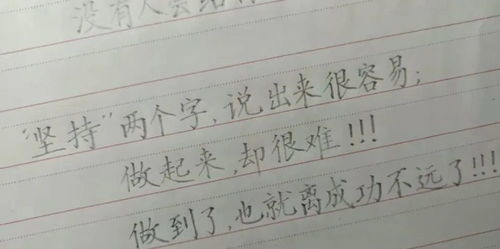 没有人会
"坚持"两个字，说出来很容易；
做起来，却很难!!!
做到了，也就离成功不远了!!!